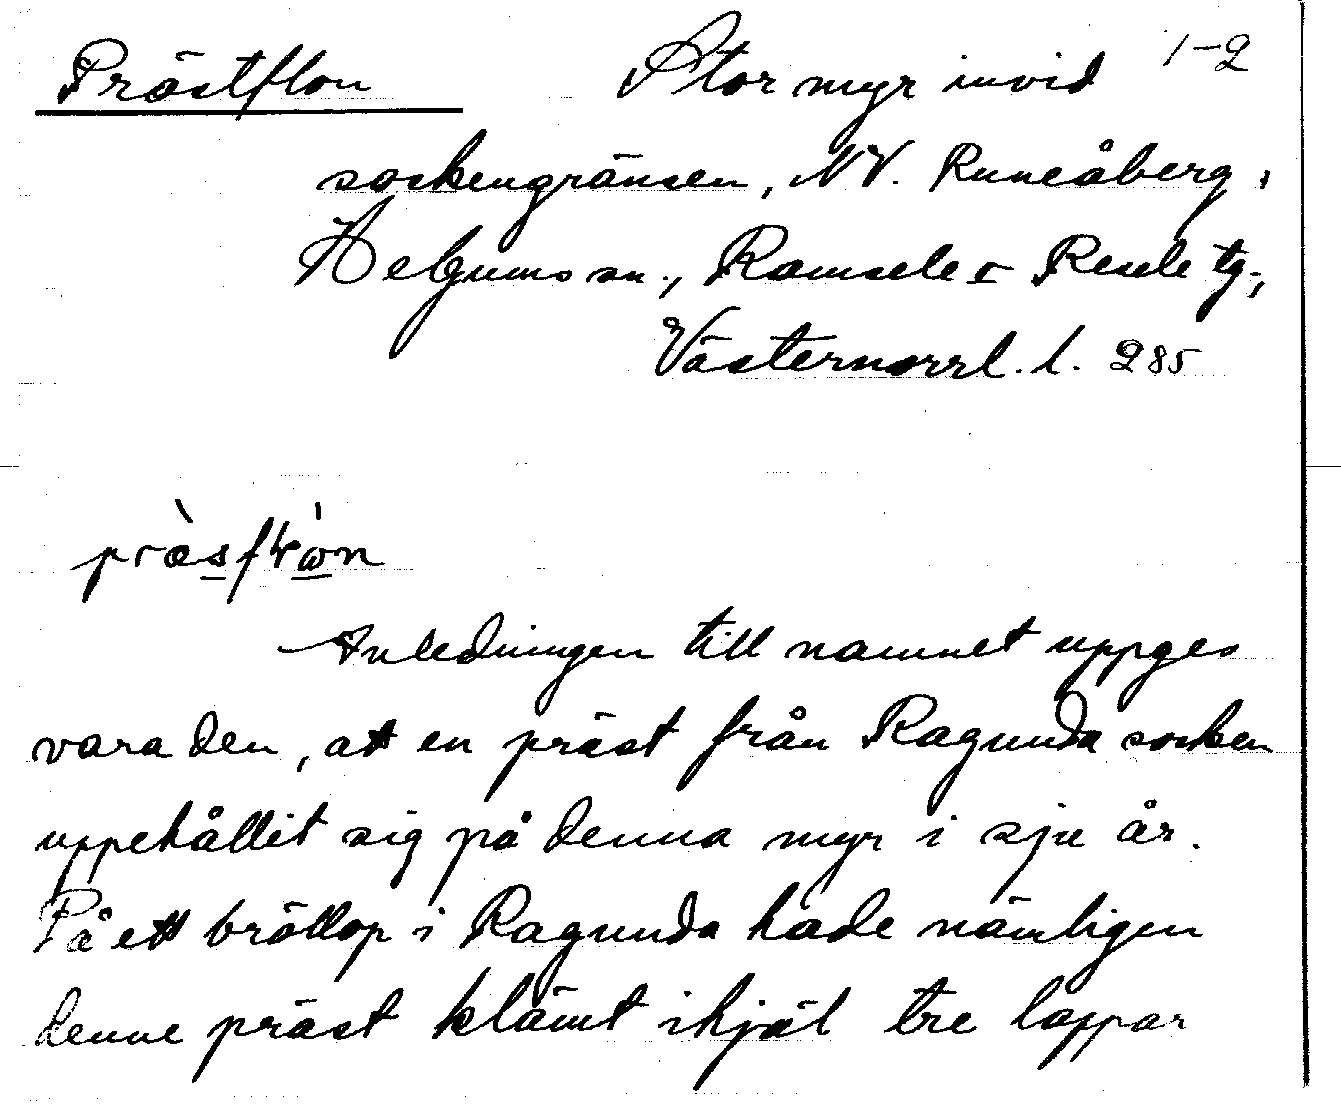 Prästflon Stor myr invid 1-2
sockengränsen, NV. Runeåberg,
Helgums sn., Ramsele o Resele tg.,
Västernorrl. l. 285
Anledningen till namnet uppges
vara den, att en präst från Ragunda socken
uppehållit sig på denna myr i sju år.
På ett bröllop i Ragunda hade nämligen
denne präst klämt ihjäl tre lappar